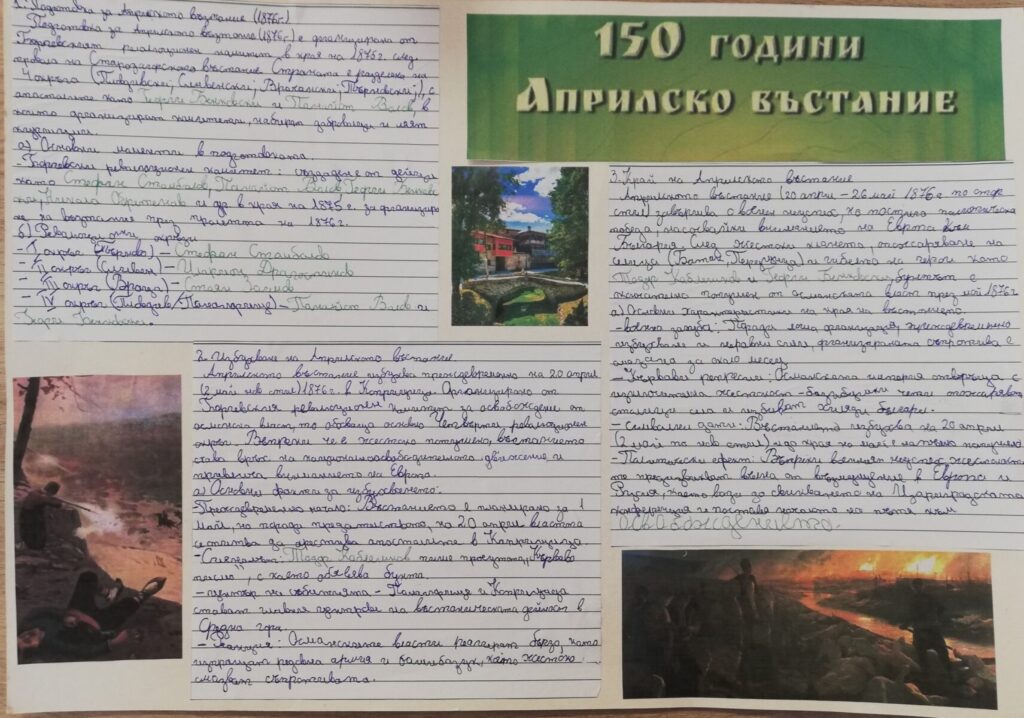 1. Подготовка за Априлското въстание (1876г.)
Подготовка за Априлското въстание (1876г.) е организирана от
Гюргевският революционен комитет в края на 1875г. след
провала на Старозагорското въстание. Страната е разделена на
4 окръга (Пловдивски, Сливенски, Врачански, Търновски), с
апостолите като Георги Бенковски и Панайот Волов, в
които организират комитети, набират доброволци и леят
а) Основни моменти в подготовката.
- Гюргевски революционен комитет: създаден от дейци
като Стефан Стамболов, Панайот Волов, Георги Бенковс
ки, Никола Обретенов и др. в края на 1875г. за организира
не на въстание през пролетта на 1876г.
б) Революционни окръзи
- I окръг (Търново) - Стефан Стамболов
- II окръг (Сливен) - Иларион Драгостинов
- III окръг (Враца) - Стоян Заимов
- IV окръг (Пловдив/Панагюрище) - Панайот Волов и
Георги Бенковски.
150 години
Априлско въстание
2. Избухване на Априлското въстание.
Априлското въстание избухва преждевременно на 20 април
(2 май нов стил) 1876г. в Копривщица. Организирано от
Гюргевския революционен комитет за освобождение от
османска власт, то обхваща основно Четвърти революционен
окръг. Въпреки че е жестоко потушено, въстанието
става връх на националноосвободителното движение и
привлича вниманието на Европа.
а) Основни факти за избухването:
- Преждевременно начало: Въстанието е планирано за 1
май, но поради предателството, на 20 април властта
се опитва да арестува апостолите в Копривщица.
- Сигналът: Тодор Каблешков пише прочутото "Кърваво
писмо", с което обявява бунта.
- център на събитията - Панагюрище и Копривщица
стават главни центрове на въстаническата дейност в
Средна гора.
- Реакция: Османските власти реагират бързо, като
изпращат редовна армия и башибозук, които жестоко
смазват съпротивата.
3. Край на Априлското въстание
Априлското въстание (20 април - 26 май 1876г. по стар
стил) завършва с военен неуспех, но постига политическа
победа, насочвайки вниманието на Европа към
България. След жестоки клането, опожаряване на
селища (Батак, Перущица) и гибелта на герои като
Тодор Каблешков и Георги Бенковски, бунтът е
окончателно потушен от османската власт през май 1876г.
а) Основни характеристики на края на въстанието.
- военна загуба: Поради лоша организация, преждевременно
избухване и неравни сили, организираната съпротива е
смазана за около месец.
- Кървави репресии: Османската империя отвръща с
изключителна жестокост - башибозушки чети пожаряват
стотици села и избиват хиляди българи.
- Символични дати: Въстанието избухва на 20 април
(2 май по нов стил) и до края на май е напълно потушено
- Политически ефект: Въпреки военния неуспех, жестокост
та предизвикват вълна от възмущение в Европа и
Русия, което води до свикването на Цариградската
конференция и поставя началото на пътя към
Освобождението.